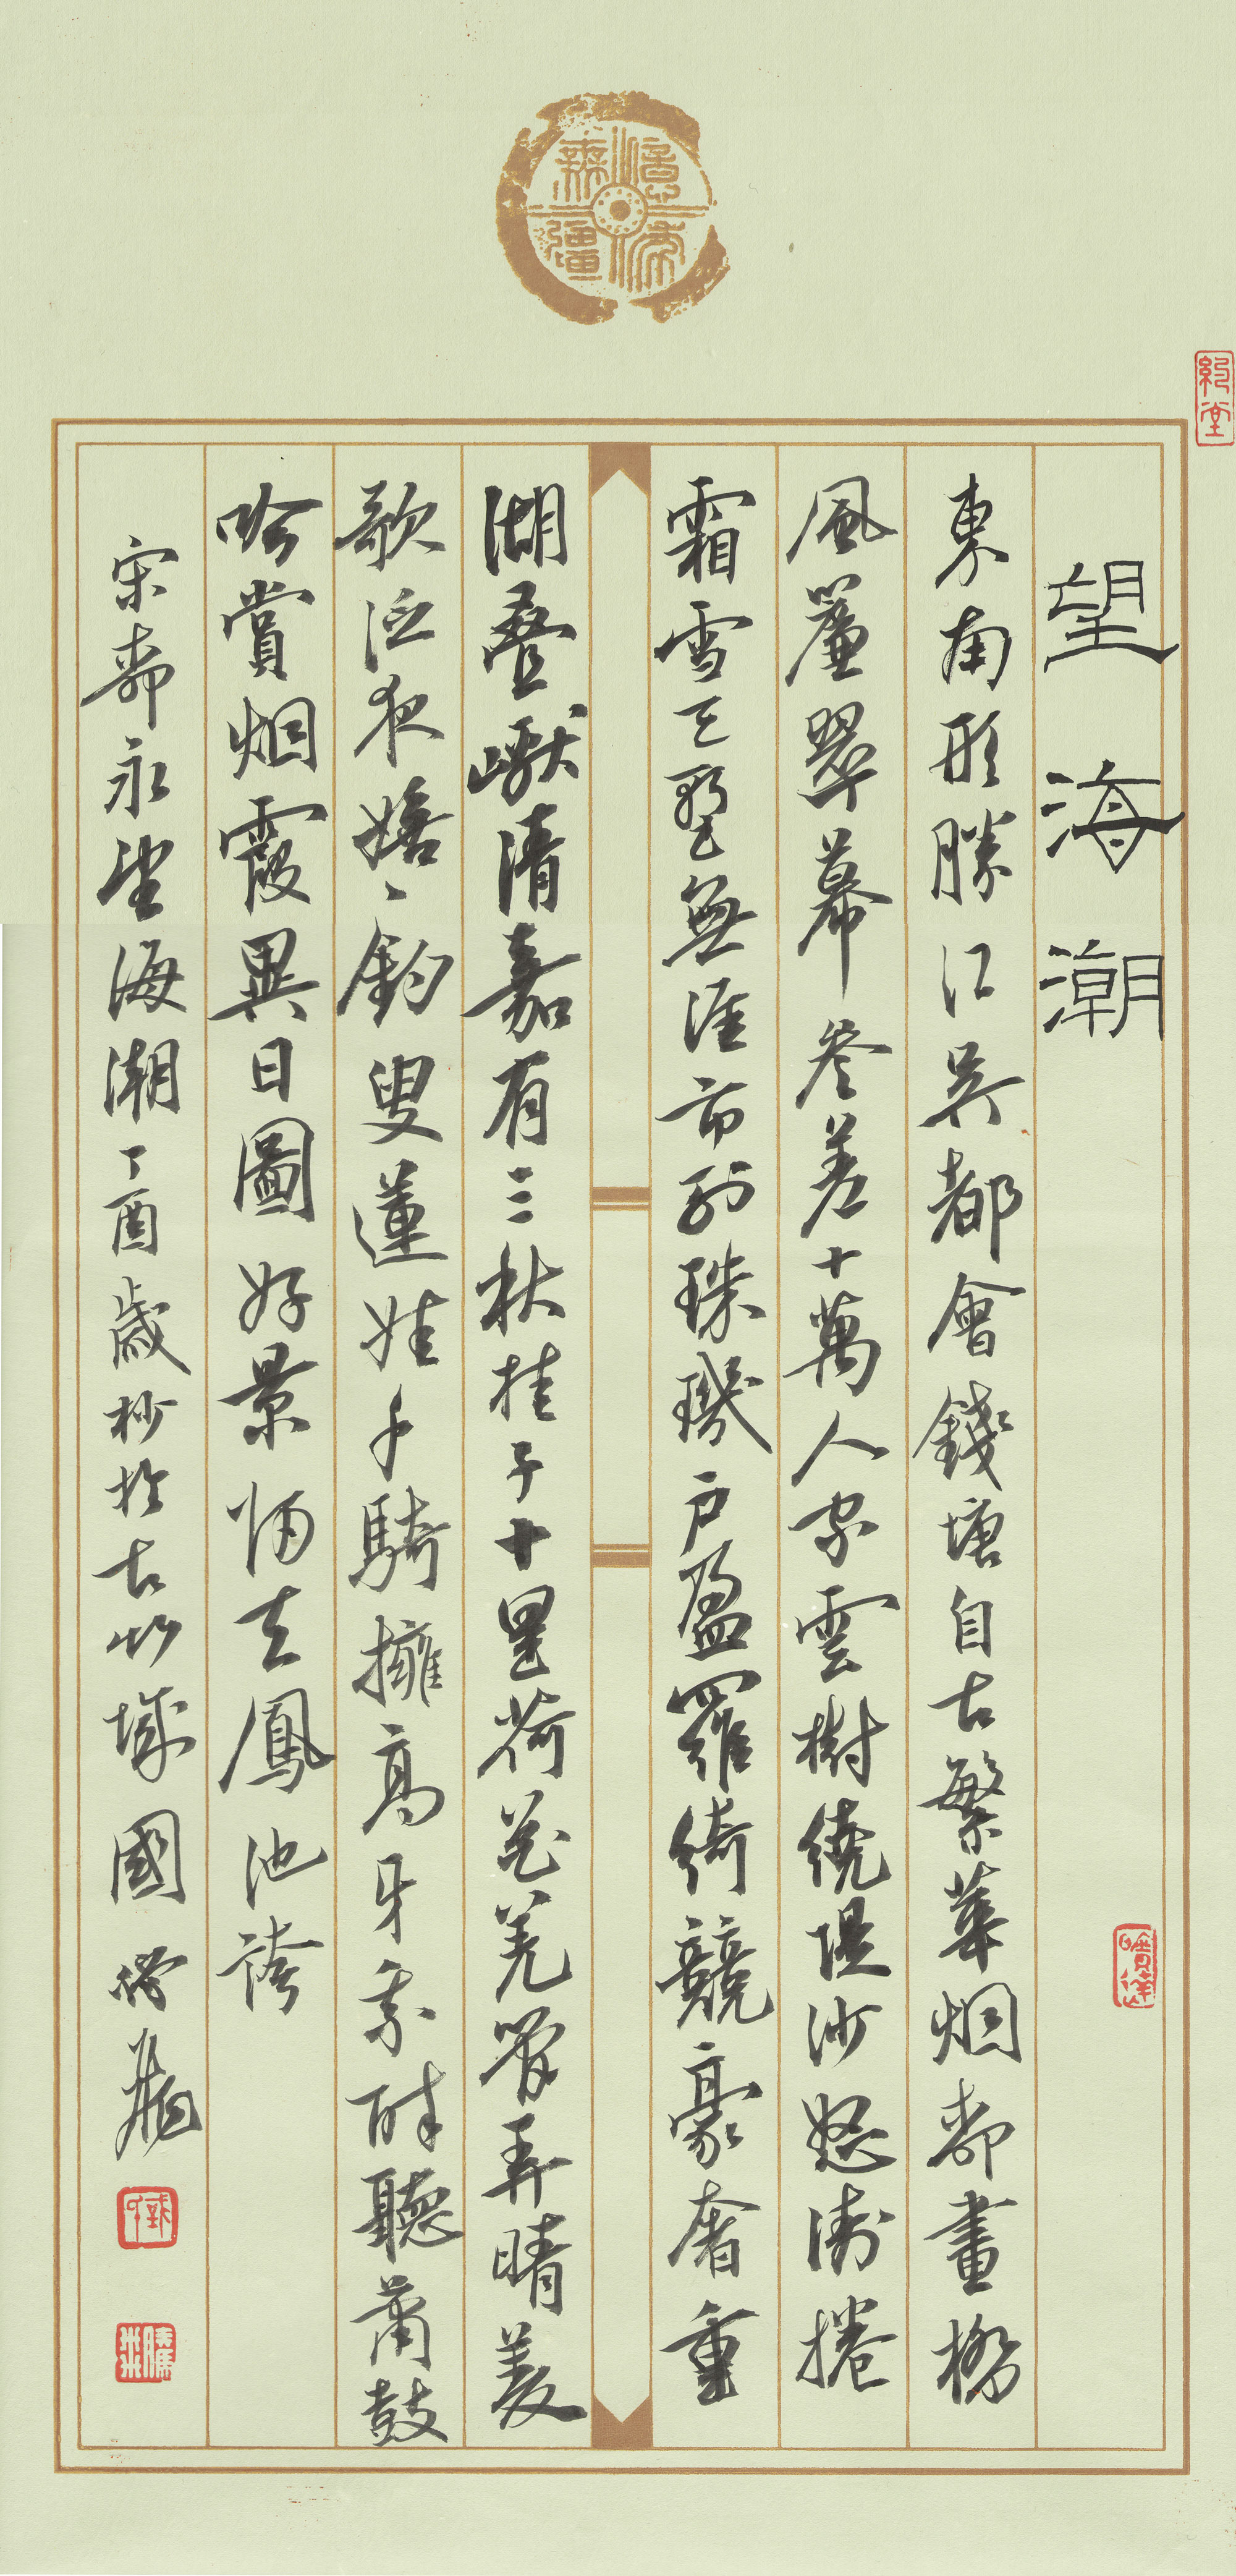 望海潮
東南形勝江吳都會錢塘自古繁華烟柳畫橋
風簾翠幕參差十萬人家雲樹繞堤沙怒濤捲
霜雪天塹無涯市列珠璣戶盈羅綺競豪奢重
湖疊巘清嘉有三秋桂子十里荷花羌管弄晴菱
歌泛夜嬉〻釣叟蓮娃千騎擁高牙乘醉聽蕭鼓
吟賞烟霞異日圖好景歸去鳳池誇
宋柳永望海潮丁酉歲杪於古城國